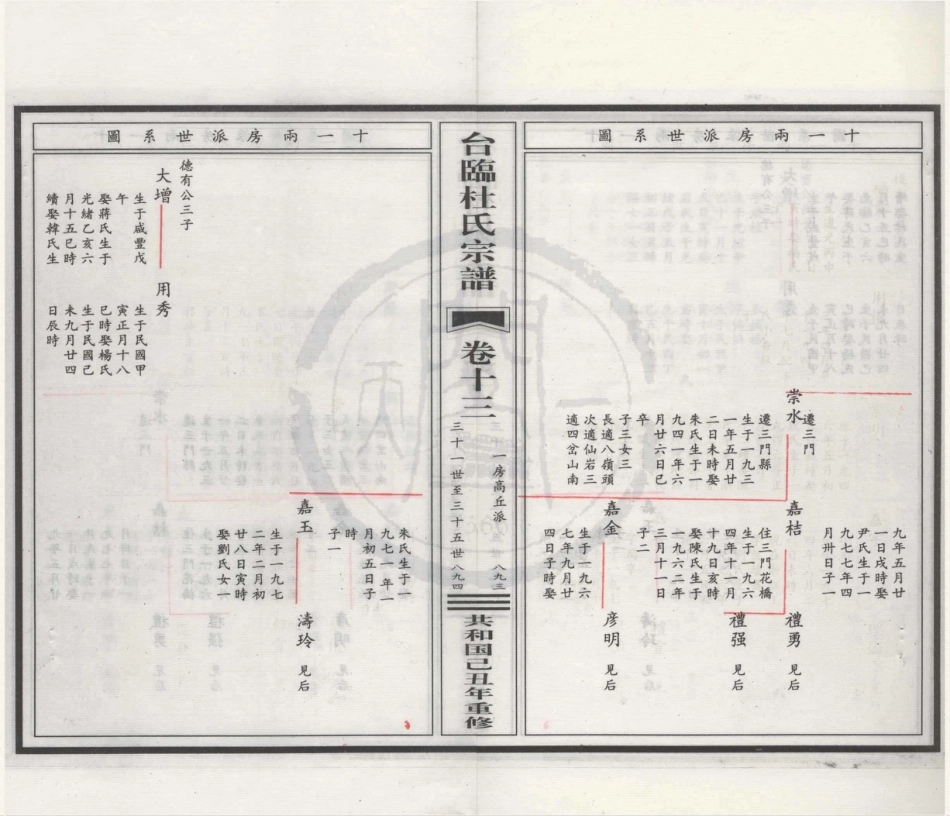 十一兩房派世系圖
九年五月廿
一日戌時娶
尹氏生于一
九七七年四
月卅日子一
遷三門
崇水
遷三門縣
生于一九三
一年五月廿
二日未時娶
朱氏生于一
九四一年六
月廿六日巳
卒
子三女三
長適八嶺頭
次適仙岩三
適四岔山南
嘉桔
住三門花橋
生于一九六
四年十一月
十九日亥時
娶陳氏生于
一九六二年
三月十一日
子二
禮勇 見后
禮强 見后
嘉金
生于一九六
七年九月廿
四日子時娶
彦明 見后
台臨杜氏宗譜
卷十三
一房高丘派 八九三
三十一世至三十五世 八九四
共和国己丑年重修
十一兩房派世系圖
朱氏生于一
九七一年一
月初五日子
時
子一
嘉玉
生于一九七
二年二月初
廿八日寅時
娶劉氏女一
濤玲 見后
德有公三子
大增
生于咸豐戊
午
娶蔣氏生于
光緒乙亥六
月十五巳時
續娶韓氏生
用秀
生于民國甲
寅正月十八
巳時娶楊氏
生于民國己
未九月廿四
日辰時